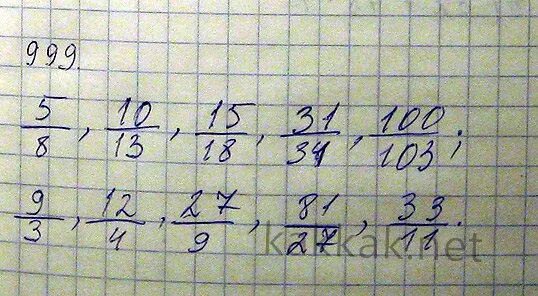 999.
5/8, 10/13, 15/18, 31/34, 100/103;
9/3, 12/4, 27/9, 81/27, 33/11.
kakkak.net